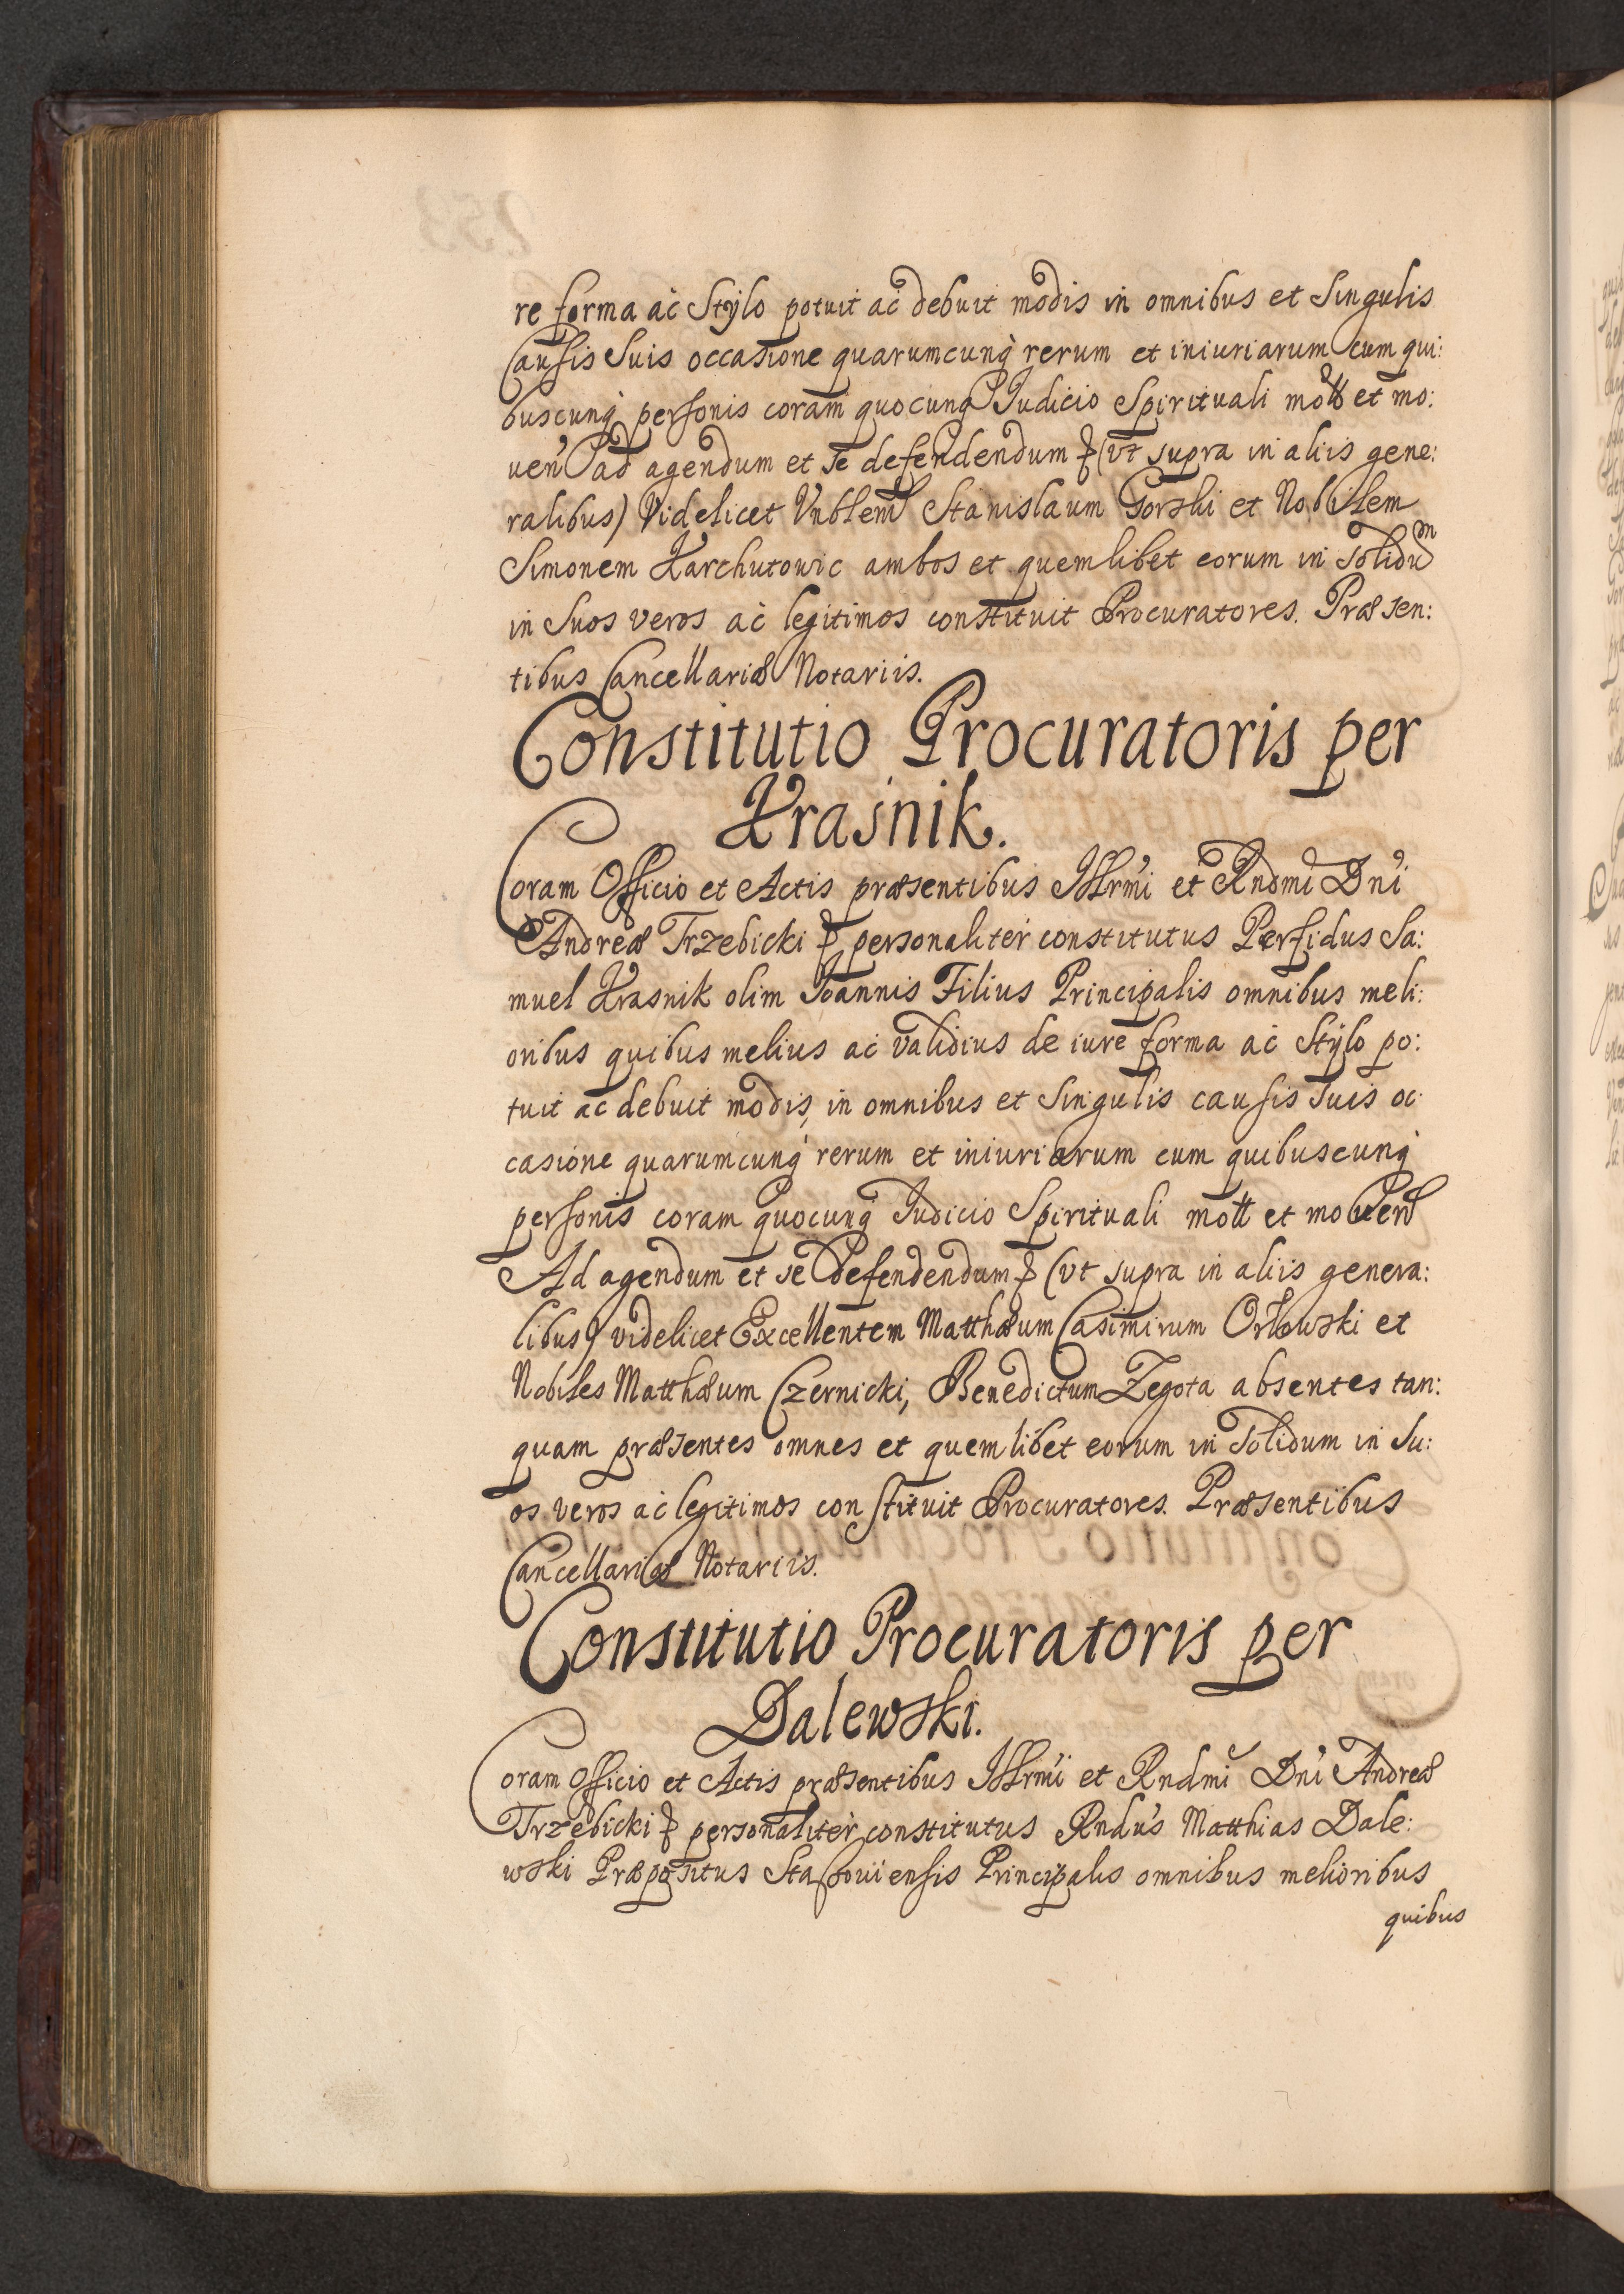 re forma ac Stylo potuit ac debuit modis in omnibus et Singulis
Causis Suis occasione quarumcunq rerum et iniuriarum cum qui:
buscunq personis coram quocunq Judicio Spirituali mott et mo:
uen ad agendum et se defendendum (vt supra in aliis gene:
ralibus) Videlicet Vnblem Stanislaum Gorski et Nobilem
Simonem Karchutowic ambos et quemlibet eorum in Solidum
in Suos veros ac legitimos constituit Procuratores. Præsen:
tibus Cancellariæ Notariis.
Constitutio Procuratoris per
Krasnik.
Coram Officio et Actis præsentibus Illrmi et Rndmi Dni
Andreæ Trzebicki personaliter constitutus Perfidus Sa:
muel Krasnik olim Joannis Filius Principalis omnibus meli:
oribus quibus melius ac validius de iure forma ac Stylo po:
tuit ac debuit modis, in omnibus et Singulis causis Suis oc:
casione quarumcunq rerum et iniuriarum cum quibuscunq
personis coram quocunq Judicio Spirituali mott et mouen
Ad agendum et se defendendum (vt supra in aliis genera:
libus) videlicet Excellentem Matthæum Casimirum Orłowski et
Nobiles Matthæum Czernicki, Benedictum Zegota absentes tan:
quam præsentes omnes et quemlibet eorum in Solidum in Su:
os veros ac legitimos constituit Procuratores. Præsentibus
Cancellariæ Notariis.
Constitutio Procuratoris per
Dalewski.
Coram Officio et Actis præsentibus Illrmi et Rndmi Dni Andreæ
Trzebicki personaliter constitutus Rndus Matthias Dale:
wski Præpositus Principalis omnibus melioribus
quibus